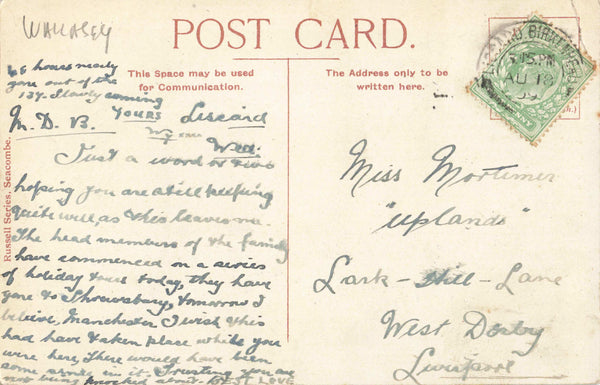 WALLASEY
POST CARD.
This Space may be used
for Communication.
The Address only to be
written here.
BIRKENHEAD
.15 PM
AU 18
09
65 hours nearly
gone out of the
137. Slowly coming
YOURS
M. D. B.
Liscard
Wed.
Just a word or two
hoping you are still keeping
quite well, as this leaves me.
The head members of the family
have commenced on a series
of holiday tours today, they have
gone to Shrewsbury, tomorrow I
believe, Manchester I wish this
had have taken place while you
were here, There would have been
some in it. Trusting you are
not being knocked about. BEST LOVE
Russell Series, Seacombe.
Miss Mortimer
"Uplands"
Lark-Hill-Lane
West Derby
Liverpool